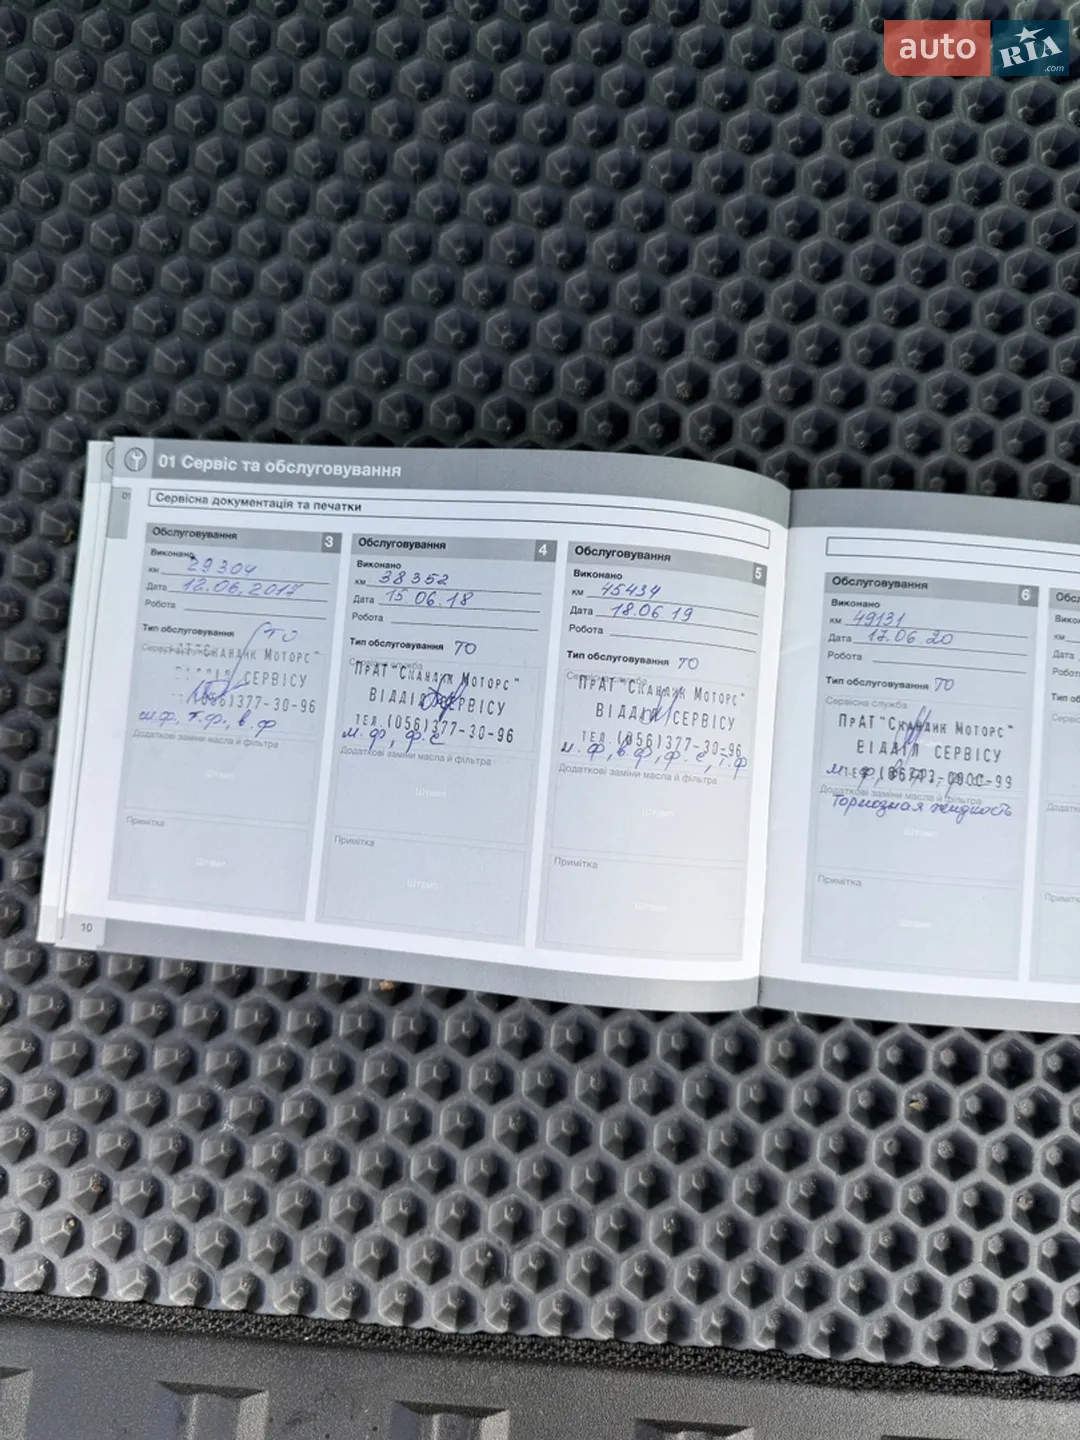 auto RIA .com
01 Сервіс та обслуговування
01
Сервісна документація та печатки
Обслуговування 3
Виконано
км 29304
Дата 12.06.2017
Робота
Тип обслуговування ТО
"Скандік Моторс"
СЕРВІСУ
(056)377-30-96
м.ф, т.ф., в.ф
Додаткові заміни масла й фільтра
Штамп
Примітка
Штамп
10
Обслуговування 4
Виконано
км 38352
Дата 15.06.18
Робота
Тип обслуговування ТО
Сервісна служба
ПрАТ "Скандік Моторс"
ВІДДІЛ СЕРВІСУ
тел.(056)377-30-96
м.ф, ф.с
Додаткові заміни масла й фільтра
Штамп
Примітка
Штамп
Обслуговування 5
Виконано
км 45434
Дата 18.06.19
Робота
Тип обслуговування ТО
Сервісна служба
ПрАТ "Скандік Моторс"
ВІДДІЛ СЕРВІСУ
тел.(056)377-30-96
м.ф, в.ф, ф.с, т.ф
Додаткові заміни масла й фільтра
Штамп
Примітка
Штамп
Обслуговування 6
Виконано
км 49131
Дата 17.06.20
Робота
Тип обслуговування ТО
Сервісна служба
ПрАТ "Скандік Моторс"
ВІДДІЛ СЕРВІСУ
Додаткові заміни масла й фільтра
Тормозная жидкость
Штамп
Примітка
Штамп